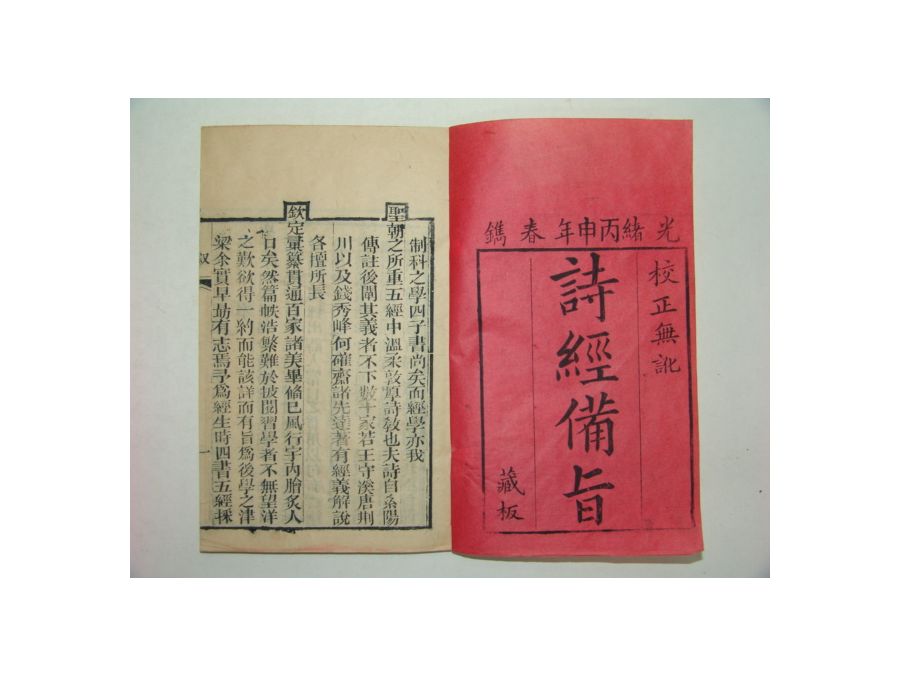 光緒丙申年春鐫
校正無訛
詩經備旨
藏板
制科之學四子書尚矣而經學亦我
聖朝之所重五經中溫柔敦厚詩教也夫詩自紫陽
傳註後闡其義者不下數十家若王守溪唐荊
川以及錢秀峰何確齋諸先達著有經義解說
各擅所長
欽定彙纂貫通百家諸美畢偹已風行宇內膾炙人
口矣然篇帙浩繁難於披閱習學者不無望洋
之歎欲得一約而能該詳而有旨爲後學之津
梁余實早劼有志焉予爲經生時四書五經採
叙
一